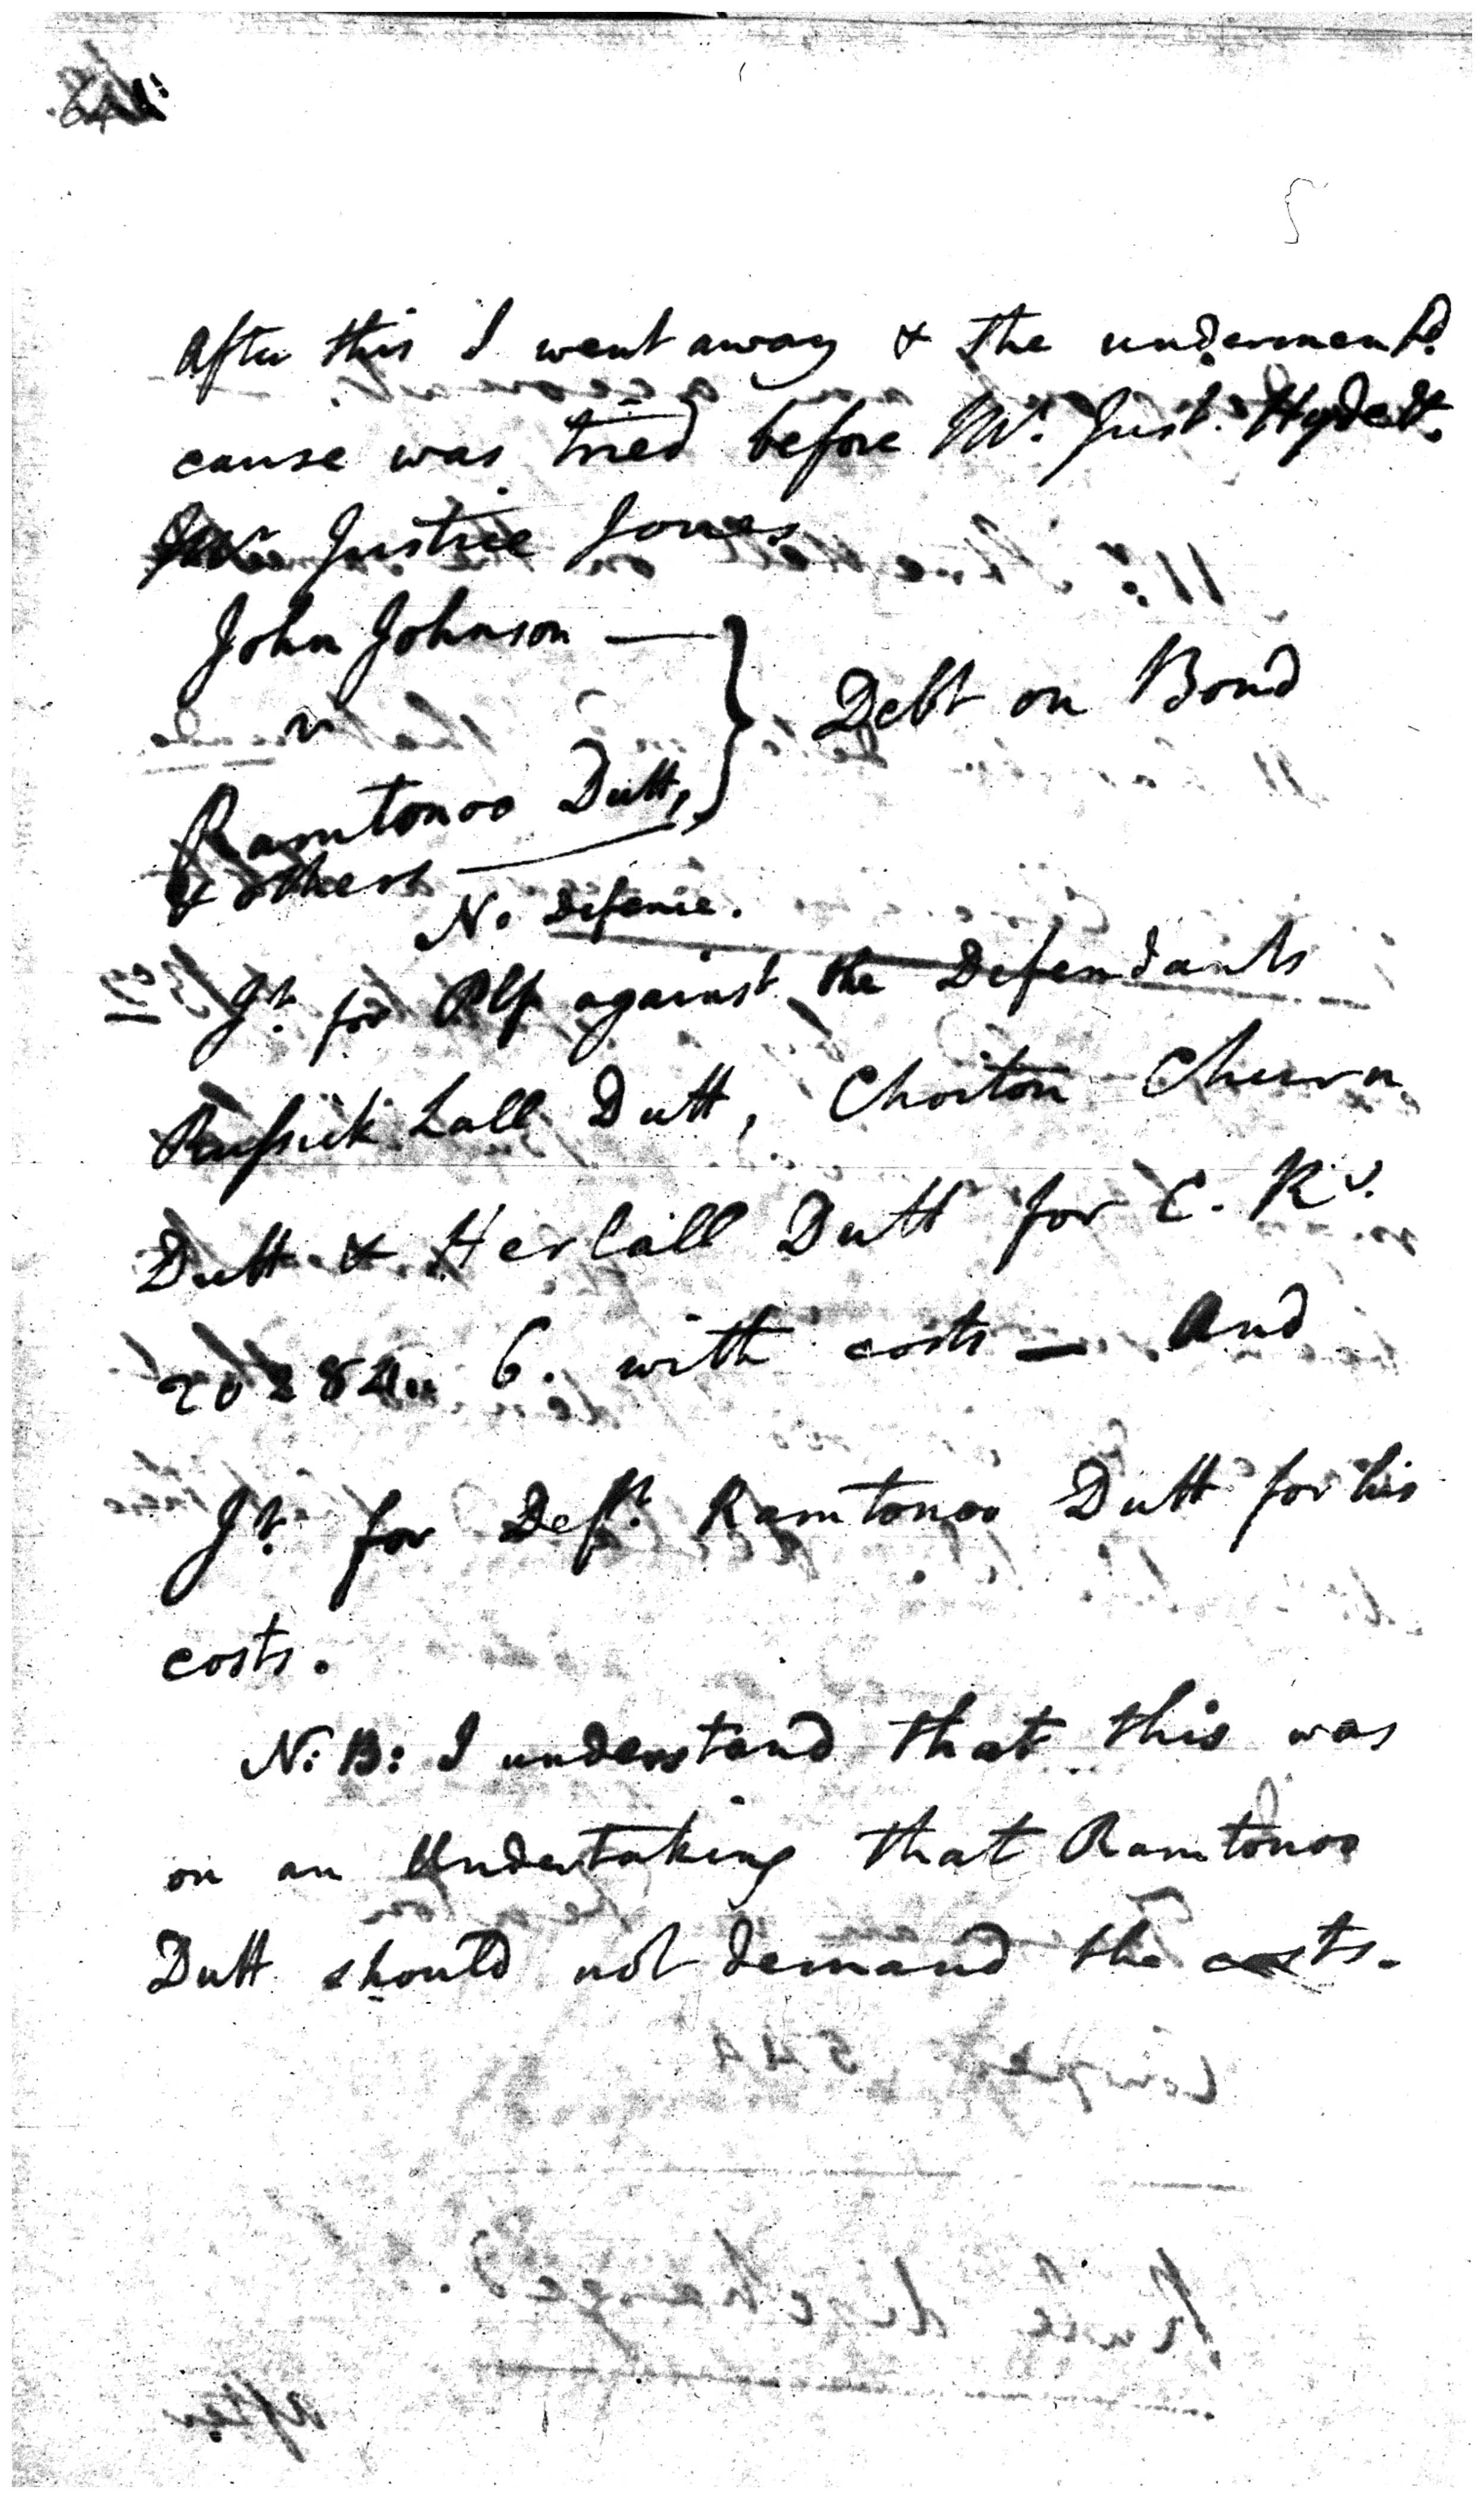 After this I went away & the underment.d
cause was tried before Mr. Just. Hyde &
Justice Jones
John Johnson —
v
Debt on Bond
Ramtonoo Dutt,
& others
No Defence.
Jt. for Plf against the Defendants
Russick Lall Dutt, Choiton Churn
Dutt & Herlall Dutt for C. Rs.
6. with costs — And
Jt. for Deft. Ramtonoo Dutt for his
costs.
N: B: I understand that this was
on an Undertaking that Ramtonoo
Dutt should not demand the costs.